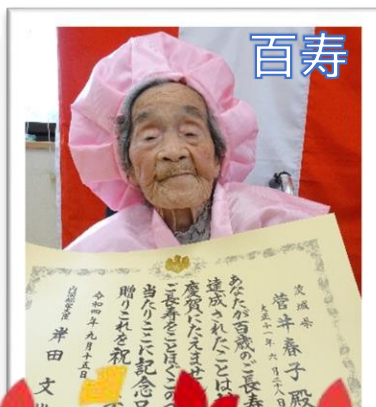 百寿
茨城県
菅井春子殿
大正十一年六月二十八日
あなたが百歳のご長寿
達成されたことは
慶賀にたえません
ご長寿をことほぐこの
当たりここに記念品
贈りこれを祝
令和四年九月十五日
内閣総理大臣 岸田文